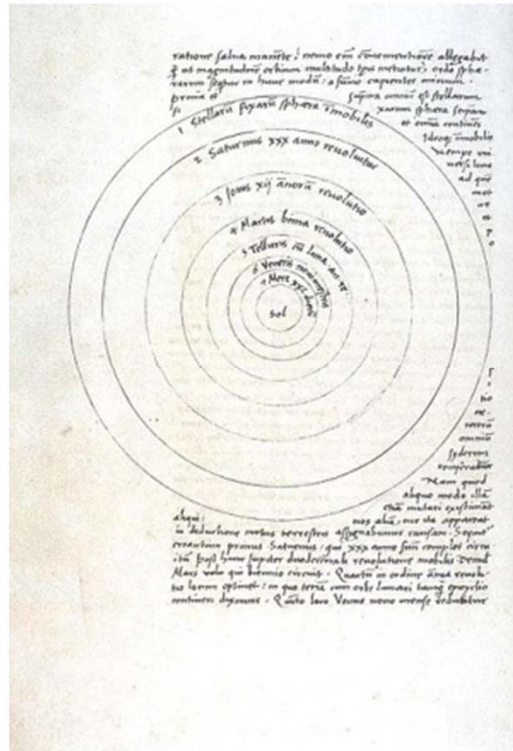 ratione salva manēte, nemo em̄ convenientiorē allegabit
q̄ ut magnitudinē orbium multitudo tp̄is metiatur, ordo sphæ-
rarum sequitur in hunc modū: a summo capientes initium.
prima et suprema omniū est stellarum
fixarum sphæra seipsam
et omnia continens
Ideoq; īmobilis
nempe uni
versi locus
ad quē
mot
1 Stellarū fixarū sphæra īmobilis
2 Saturnus xxx anno revoluitur
3 Jovis xij annorū revolutio
4 Martis bima revolutio
5 Telluris cū luna an. re.
6 Veneris nonimestris
7 Merc xxc dierū
Sol
tio
ne.
omniū
syderum
Nam quod
aliquo modo illā
etiā mutari existimāt
aliqui: nos aliā, cur ita appareat
in deductione motus terrestris assignabimus causam. Sequitur
errantium primus Saturnus: qui xxx anno suū complet circu
itū post hunc Jupiter duodecennali revolutione mobilis. Deinde
Mars volu qui biennio circuit. Quartū in ordine annua revolu
tio locum optinet: in quo terrā cum orbe lunari tanq̄ epicyclio
contineri diximus. Quīto loco Venus nono mense reducitur